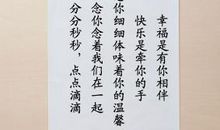 幸福是有你相伴
快乐是牵你的手
你细细体味着你的温馨
念你念着我们在一起
分分秒秒，点点滴滴